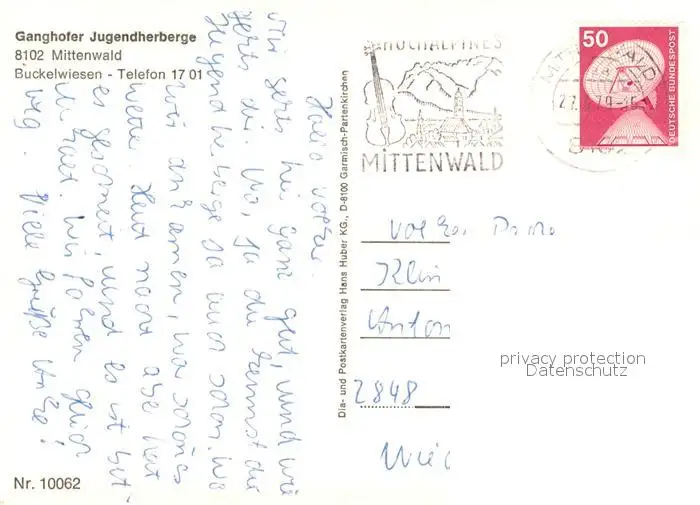 Ganghofer Jugendherberge
8102 Mittenwald
Buckelwiesen - Telefon 17 01
Hallo Volker.
Mir gehts hier ganz gut, und wie
gehts dir. Na, ja du kennst die
Jugendherberge ja auch schon. Wo
wir ankamen, war schönes
Wetter. Heut nacht aber hat
es geschneit, und es ist bit-
ter kalt. Wir fahren gleich
weg. Viele Grüße
Nr. 10062
Dia- und Postkartenverlag Hans Huber KG., D-8100 Garmisch-Partenkirchen
HOCHALPINES
MITTENWALD
50
DEUTSCHE BUNDESPOST
Volker
Klein
Anton
2848
privacy protection
Datenschutz